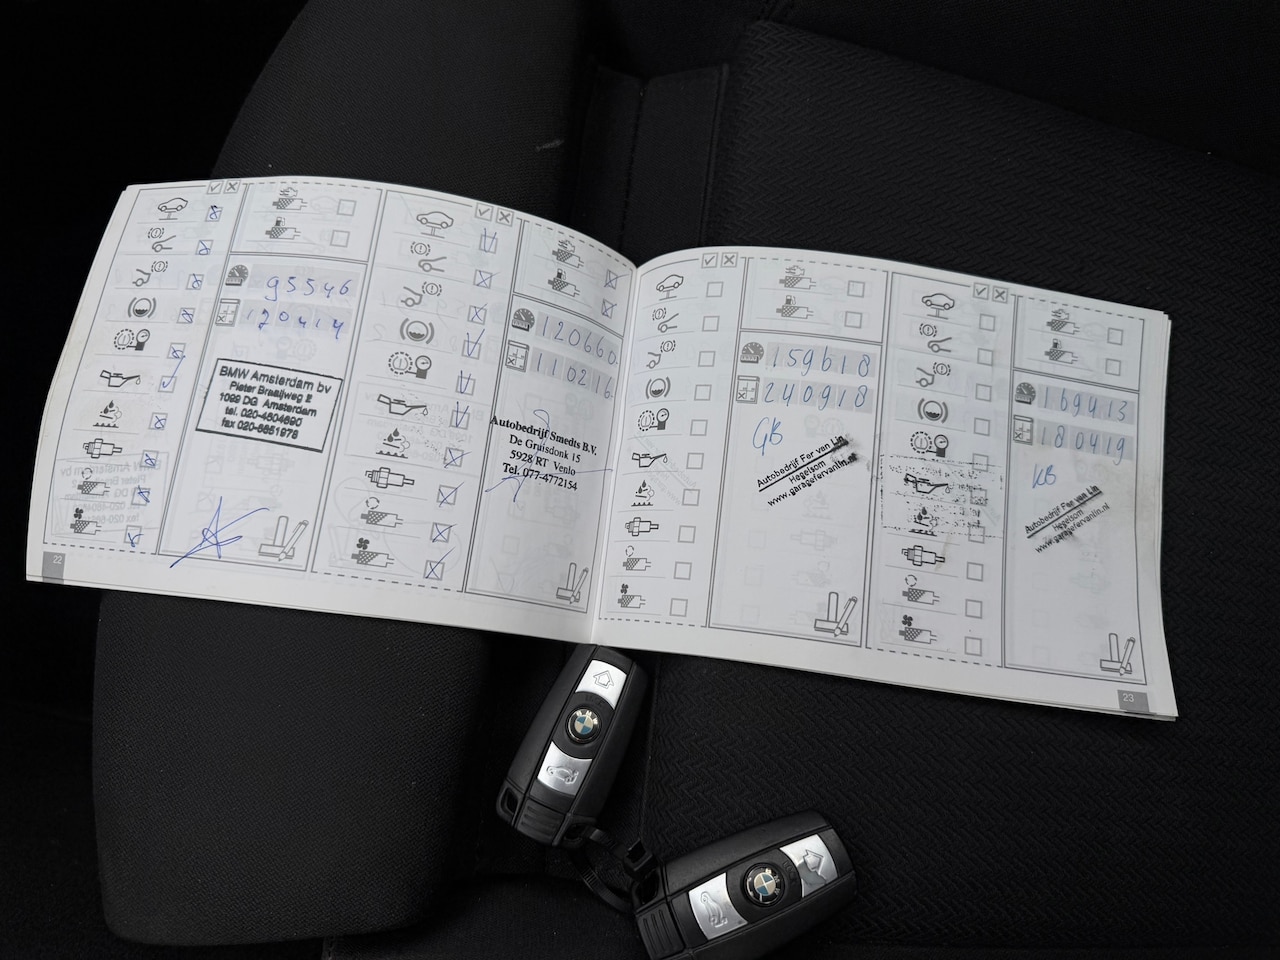 95546
120414
BMW Amsterdam bv
Pieter Braaijweg 2
1099 DG Amsterdam
tel. 020-4604690
fax 020-6651978
22
120660
110216
Autobedrijf Smedts B.V.
De Gruisdonk 15
5928 RT Venlo
Tel. 077-4772154
159618
240918
GB
Autobedrijf Fer van Lin
Hegelsom
www.garagefervanlin.nl
169413
180419
KB
Autobedrijf Fer van Lin
Hegelsom
www.garagefervanlin.nl
23
BMW
BMW